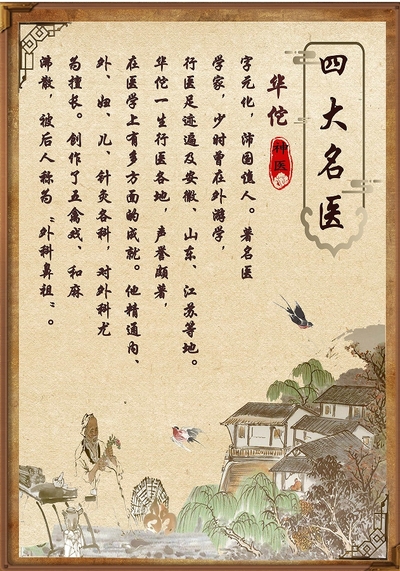 四大名医
华佗
神医
字元化，沛国谯人。著名医
学家，少时曾在外游学，
行医足迹遍及安徽、山东、江苏等地。
华佗一生行医各地，声誉颇著，
在医学上有多方面的成就。他精通内、
外、妇、儿、针灸各科，对外科尤
为擅长。创作了五禽戏、和麻
沸散，被后人称为“外科鼻祖”。